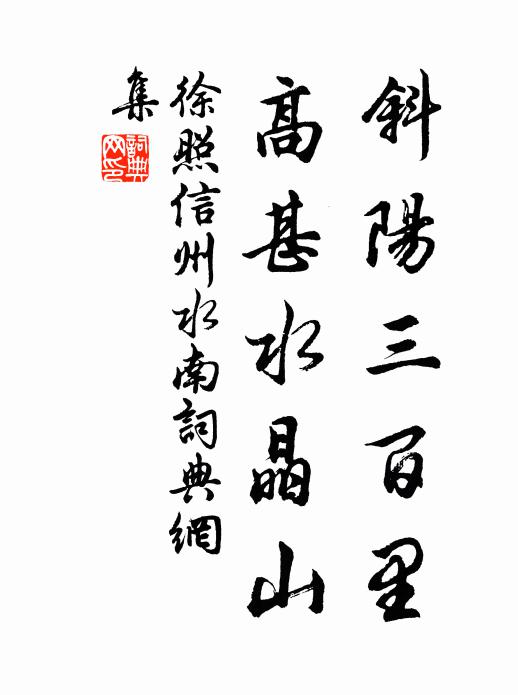 斜陽三百里
高甚水晶山
徐照信州水南詞典網
集
詞典網印